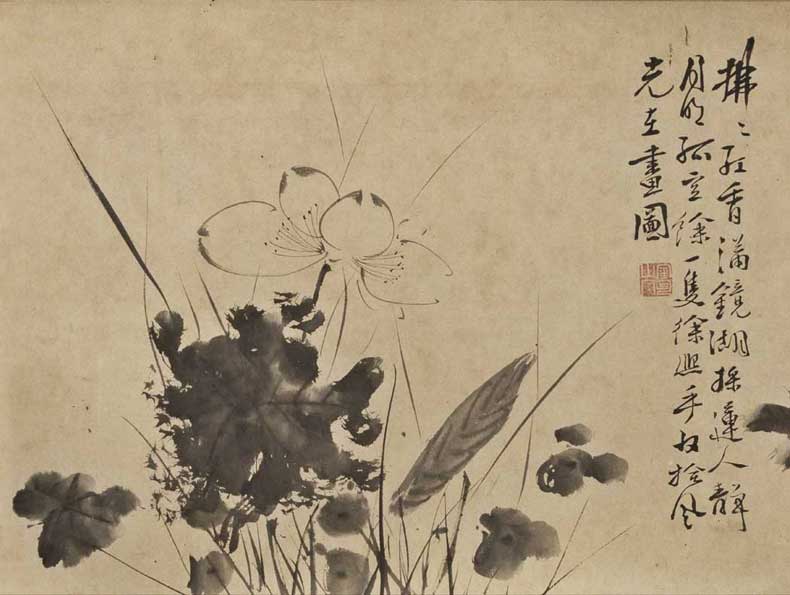 拂〻紅香滿鏡湖採蓮人靜
月明孤空餘一隻徐熙手收拾風
光在畫圖